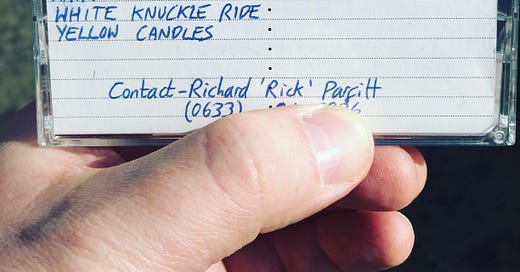 WHITE KNUCKLE RIDE :
YELLOW CANDLES :
Contact-Richard 'Rick' Parfitt
(0633)